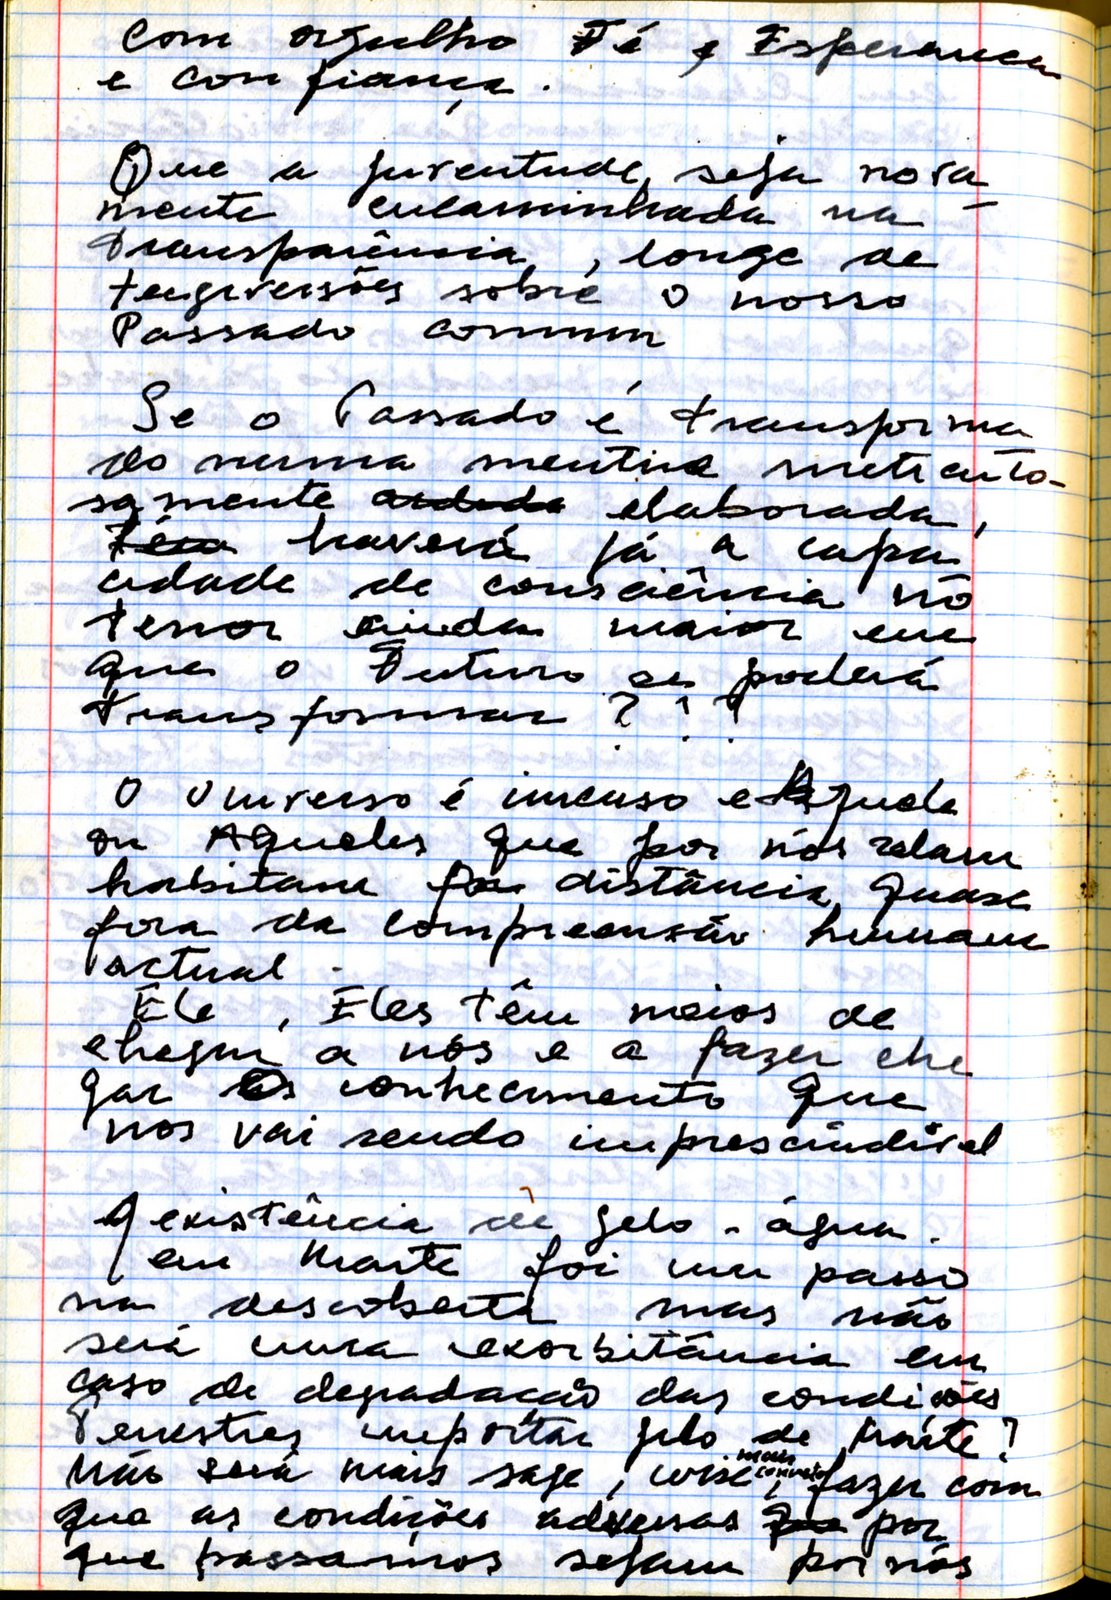 Com orgulho Fé e Esperança
e confiança.
Que a juventude, seja nova
mente encaminhada na
transparência, longe de
tergiversões sobre o nosso
Passado comum
Se o Passado é transforma
do numa mentira meticulo-
samente elaborada,
haverá já a capa
cidade de consciência no
terror ainda maior em
que o Futuro se poderá
transformar ? ! !
O Universo é imenso e Aquele
ou Aqueles que por nós zelam
habitam distância, quase
fora da compreensão humana
actual.
Ele, Eles têm meios de
chegar a nós e a fazer che
gar os conhecimento que
nos vai sendo imprescindível
A existência de gelo - água.
em Marte foi um passo
na descoberta mas não
será uma exorbitância em
caso de degradação das condições
Terrestres importar gelo de Marte?
Não será mais sage, wise, mais correcto, fazer com
que as condições adversas por
que passamos sejam por nós